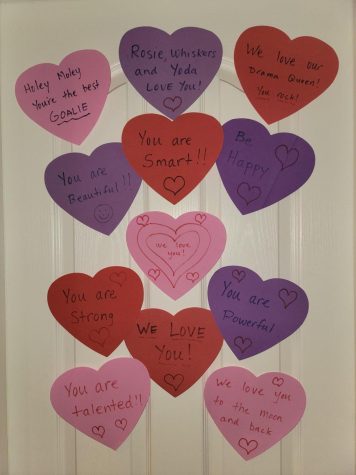 Holey Moley
You're the best
GOALIE
Rosie, Whiskers
and Yoda
LOVE You!
We love our
Drama Queen!
You rock!
You are
Smart!!
You are
Beautiful!!
Be
Happy
we love
you!
You are
Strong
You are
Powerful
WE LOVE
You!
You are
talented!!
We love you
to the moon
and back